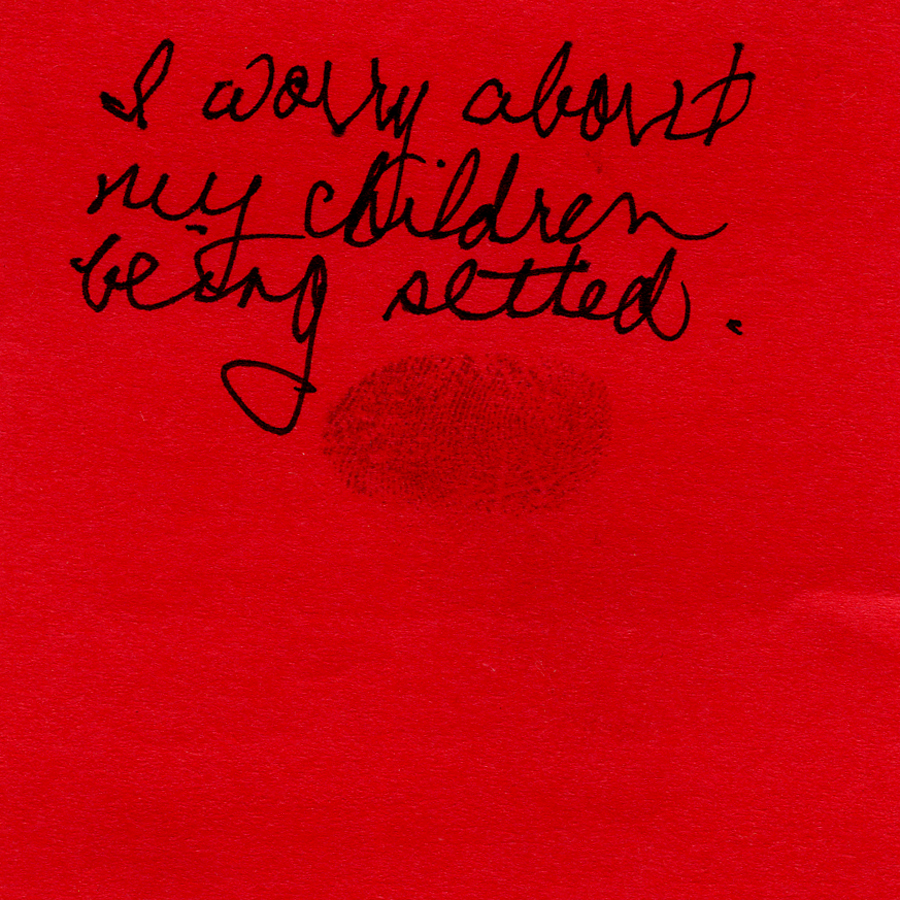 I worry about
my children
being setted.